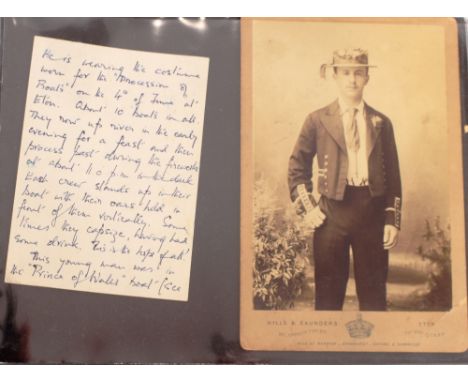 He is wearing the costume
worn for the "Procession of
Boats" on the 4th of June at
Eton. About 10 boats in all.
They row up river in the early
evening for a feast and then
process past during the fireworks
at about 11.0 p.m. in the dark
Each crew stands up in their
boat with their oars held in
front of them vertically. Some
times they capsize, having had
some drink. This is the hope of all!
This young man was in
the "Prince of Wales" Boat
HILLS & SAUNDERS
ETON